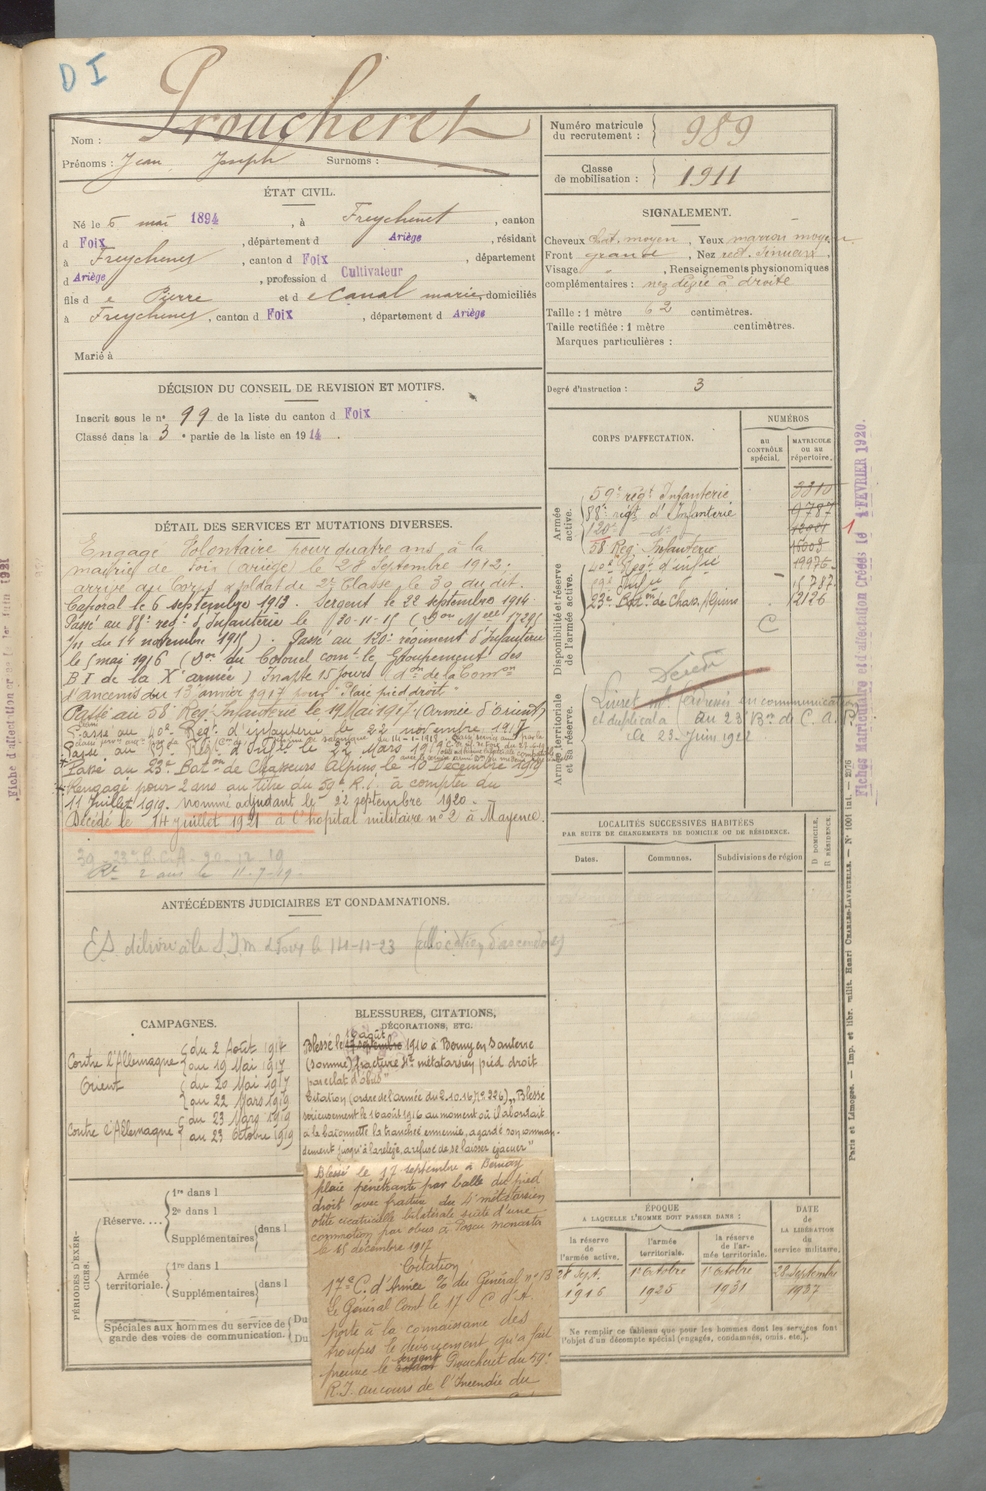 D I
Proucheret
Nom :
Prénoms : Jean Joseph Surnoms :
Numéro matricule du recrutement : 989
Classe de mobilisation : 1911
ÉTAT CIVIL.
Né le 6 mai 1894, à Freychenet, canton
d Foix, département d Ariège, résidant
à Freychenet, canton d Foix, département
d Ariège, profession d Cultivateur
fils d e Pierre et d e Canal marie, domiciliés
à Freychenet, canton d Foix, département d Ariège
Marié à
SIGNALEMENT.
Cheveux chat. moyen, Yeux marron moyen
Front grande, Nez rect. sinueux.
Visage " , Renseignements physionomiques
complémentaires : nez dégié à droite
Taille : 1 mètre 62 centimètres.
Taille rectifiée : 1 mètre centimètres.
Marques particulières :
Degré d'instruction : 3
DÉCISION DU CONSEIL DE REVISION ET MOTIFS.
Inscrit sous le n° 99 de la liste du canton d Foix
Classé dans la 3e partie de la liste en 1914.
CORPS D'AFFECTATION.
NUMÉROS
au CONTRÔLE spécial.
MATRICULE ou au répertoire.
Armée active.
59e rég. Infanterie
88e régt d'Infanterie 9787
120e - d° -
58 Reg. Infanterie 15003
40e Regt d'infie 19976
Disponibilité et réserve de l'armée active.
59e Infie " 15787
23e Bat on de Chass. Alpins 12126
C
1
Armée territoriale et sa réserve.
Décédé
Livret mle
et duplicata au 23 Bon de C. A. P.
le 23 Juin 1922
DÉTAIL DES SERVICES ET MUTATIONS DIVERSES.
Engagé Volontaire pour quatre ans à la
mairie de Foix (ariège) le 28 Septembre 1912.
arrivé au Corps & soldat de 2e Classe le 30 du dit.
Caporal le 6 septembre 1913. Sergent le 22 septembre 1914.
Passé au 88e regt d'Infanterie le 20-11-15 (Don Mlle 17295
/11 du 11 novembre 1915). Passé au 120e regiment d'Infanterie
le 5 mai 1916 (Don du Colonel comt le Groupement des
B I de la Xe armée) Inapte 15 jours Don de la Comon
d'ancenis du 13 janvier 1917 pour "Plaie pied droit"
Passé au 58e Reg. Infanterie le 19 Mai 1917 (Armée d'Orient)
Passé au 40e Regt d'infanterie le 22 novembre 1917
Passé au 59e Regt d'Infie le 22 Mars 1919
Passé au 23e Baton de Chasseurs Alpins le 10 Décembre 1919
Rengagé pour 2 ans au titre du 59 R.I. à compter du
11 Juillet 1919. nommé adjudant le 22 septembre 1920.
Décédé le 14 juillet 1921 à l'hôpital militaire n° 2 à Mayence.
23e B.C.A. 20-12-19
Rt 2 ans le 11-7-19
LOCALITÉS SUCCESSIVES HABITÉES
PAR SUITE DE CHANGEMENTS DE DOMICILE OU DE RÉSIDENCE.
Dates. Communes. Subdivisions de région
D. DOMICILE.
R. RÉSIDENCE.
ANTÉCÉDENTS JUDICIAIRES ET CONDAMNATIONS.
ES délivré à la S I M de Foix le 14-11-23 (allocation d'ascendants)
CAMPAGNES.
Contre l'Allemagne { du 2 Août 1914
au 19 Mai 1917
Orient { du 20 Mai 1917
au 22 Mars 1919
Contre l'Allemagne { du 23 Mars 1919
au 23 Octobre 1919
BLESSURES, CITATIONS,
DÉCORATIONS, ETC.
16 août
Blessé le 17 septembre 1916 à Berny en Santerre
(Somme) fracture 4e métatarsien pied droit
par éclat d'obus"
Citation (ordre de l'armée du 2.10.16) (n° 226) "Blessé
sérieusement le 16 août 1916 au moment où il abordait
à la baïonnette la tranchée ennemie, a gardé son comman-
dement jusqu'à la relève, a refusé de se laisser évacuer"
Blessé le 17 septembre à Berny
plaie pénétrante par balle du pied
droit avec fracture du 4e métatarsien
otite cicatricielle bilatérale suite d'une
commotion par obus à Posen monastir
le 15 décembre 1917
Citation
17e C. d'Armée % du Général n° 13
Le Général Comt le 17 C d'A
porte à la connaissance des
troupes le dévouement qu'a fait
preuve le sergent Proucheret du 59e
R.I. au cours de l'Incendie du
PÉRIODES D'EXERCICES.
Réserve.... 1re dans l
2e dans l
Supplémentaires dans l
Armée territoriale. 1re dans l
Supplémentaires dans l
Spéciales aux hommes du service de garde des voies de communication. Du
Du
ÉPOQUE
A LAQUELLE L'HOMME DOIT PASSER DANS :
DATE de LA LIBÉRATION du service militaire.
la réserve de l'armée active.
l'armée territoriale.
la réserve de l'armée territoriale.
28 Sept. 1916
1er Octobre 1925
1er Octobre 1931
28 Septembre 1937
Ne remplir ce tableau que pour les hommes dont les services font
l'objet d'un décompte spécial (engagés, condamnés, omis, etc.).
Fiches Matriculaire et d'affectation Créées le 1 FEVRIER 1920.
Paris et Limoges. — Imp. et libr. milit. Henri CHARLES-LAVAUZELLE. — N° 1001 int. — 2076